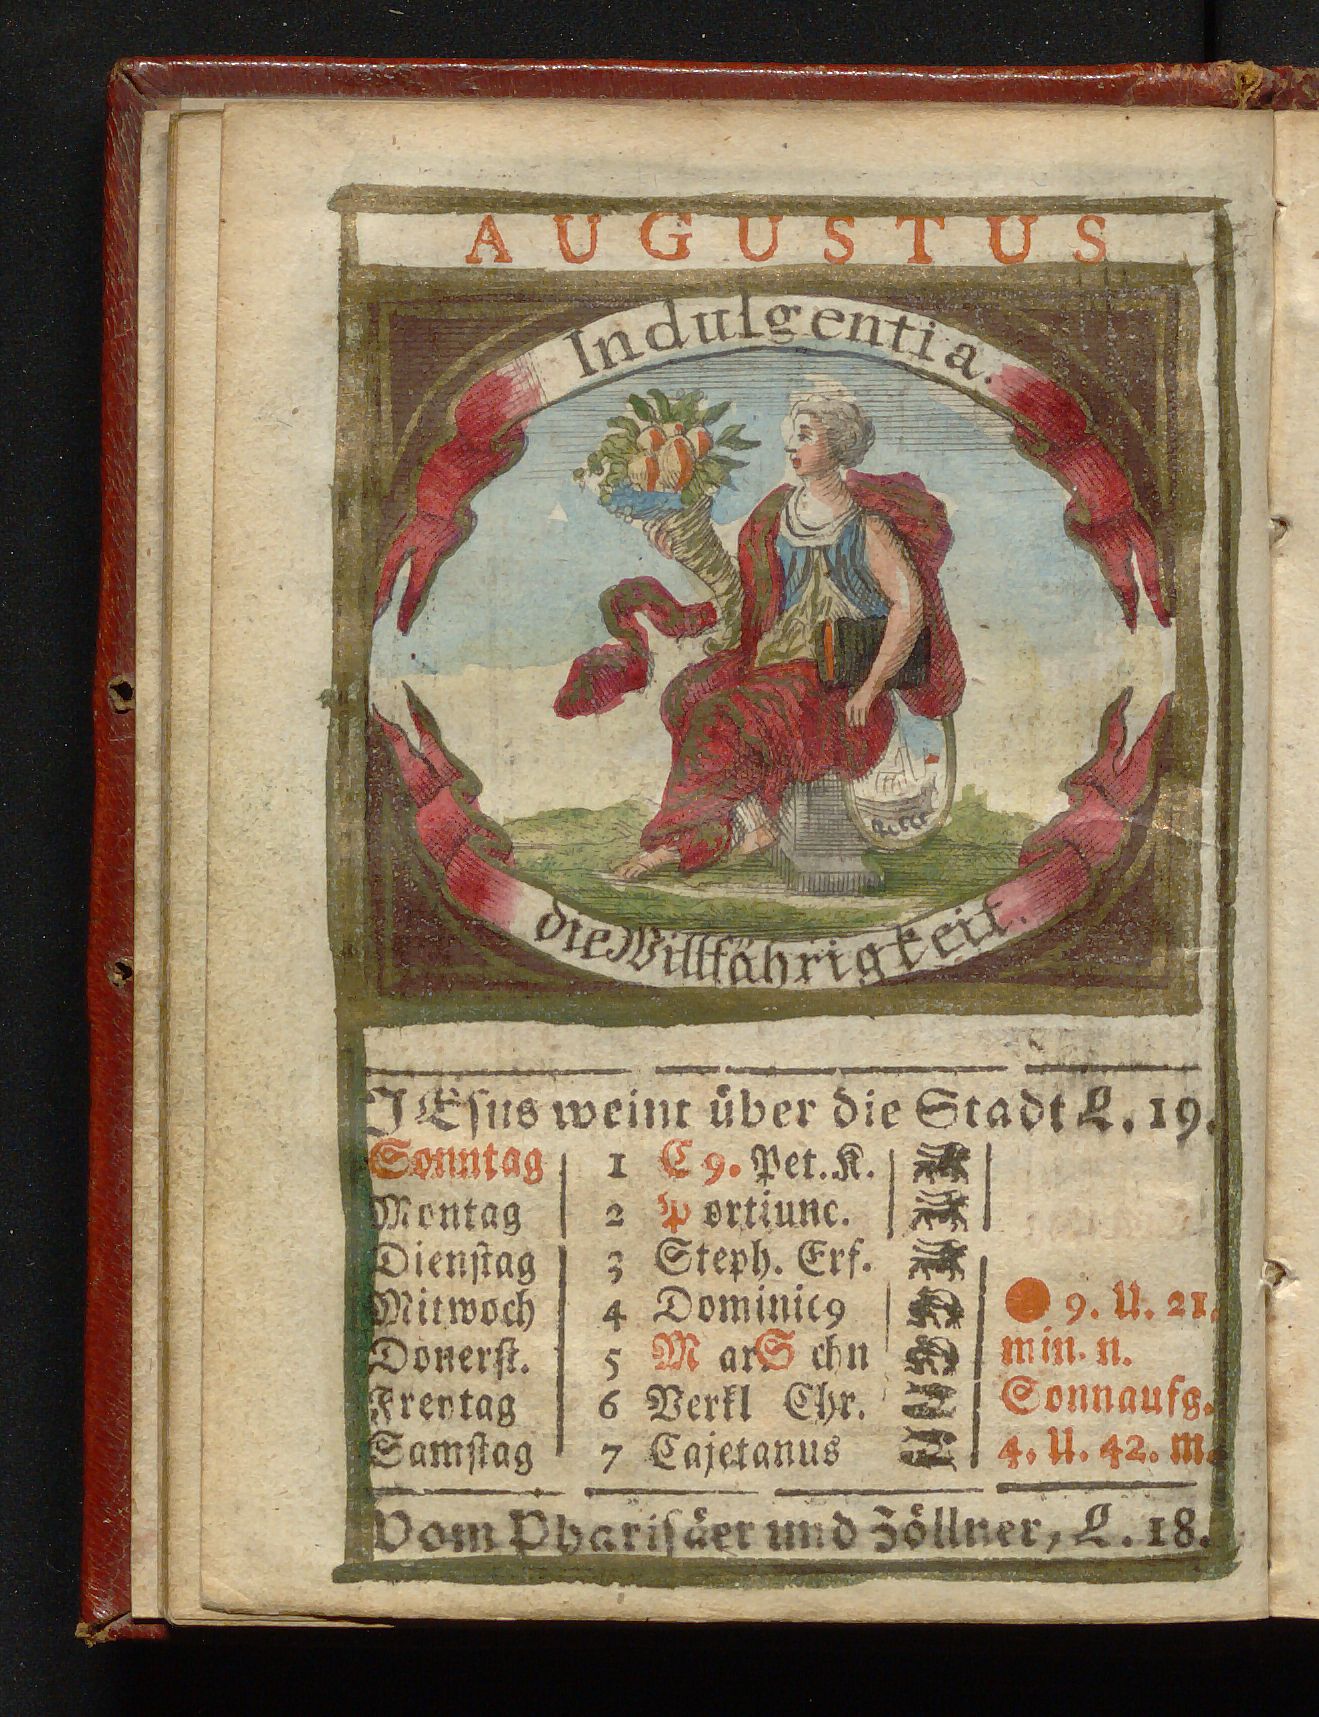 AUGUSTUS
Indulgentia.
die Willfährigkeit.
JEsus weint über die Stadt L. 19.
Sonntag 1 C 9. Pet. K.
Montag 2 Portiunc.
Dienstag 3 Steph. Erf.
Mitwoch 4 Dominic9 9. U. 21.
Donerst. 5 Mar Schn min. n.
Freytag 6 Verkl Chr. Sonnaufg.
Samstag 7 Cajetanus 4. U. 42. m.
Vom Pharisäer und Zöllner, L. 18.